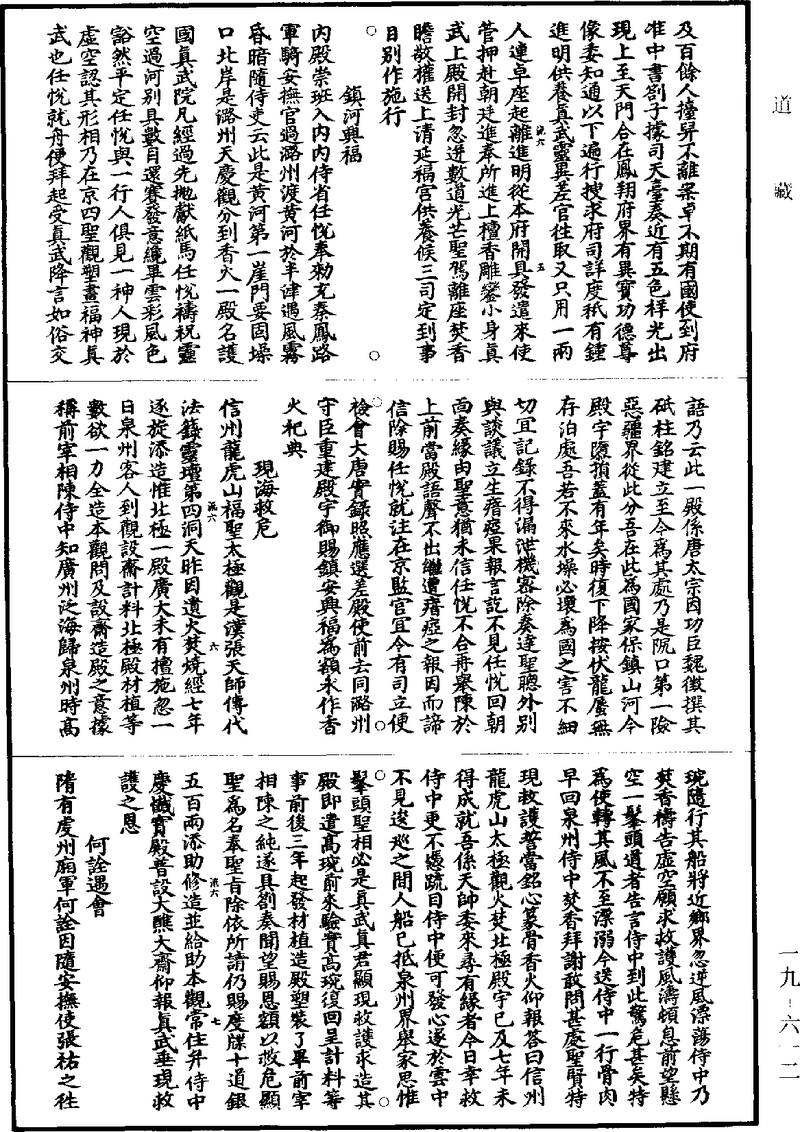 道藏
及百餘人擡舁不離案卓不期有國使到府
准中書劄子據司天臺奏近有五色祥光出
現上至天門合在鳳翔府界有異寳功德尊
像委知通以下遍行搜求府司詳度秪有鍾
進明供養真武靈異差官往取又只用一兩
人連卓座起離進明從本府開具發遣來使
管押赴朝廷進奉所進上檀香雕鑾小身真
武上殿開封忽迸數道光芒聖駕離座焚香
瞻敬權送上清延福宫供養候三司定到事
目别作施行
鎮河興福
内殿崇班入内内侍省任悦奉勑充秦鳳路
軍騎安撫官過潞州渡黄河於半津遇風霧
昏暗隨侍吏云此是黄河第一崖門要固燥
口北岸是潞州天慶觀分到香火一殿名護
國真武院凡經過先拋獻紙馬任悦禱祝靈
空過河别具數目還賽發意纔畢雲彩風色
豁然平定任悦與一行人俱見一神人現於
虚空認其形相乃在京四聖觀塑畫福神真
武也任悦就舟便拜起受真武降言如俗交
語乃云此一殿係唐太宗因功臣魏徵撰其
砥柱銘建立至今爲其處乃是阮口第一險
惡疆界從此分吾在此為國家保鎮山河今
殿宇墮損蓋有年矣時復下降按伏龍蜃無
存泊處吾若不來水燥必壞為國之害不細
切冝記錄不得漏泄機宻除奏達聖聰外别
與談議立生瘖瘂果報言訖不見任悦回朝
面奏緣由聖意猶未信任悦不合再舉陳於
上前當殿語聲不出繼遭瘖瘂之報因而諦
信除賜任悦就注在京監官冝令有司立便
檢會大唐實録照應選差殿使前去同潞州
守臣重建殿宇御賜鎮安興福爲額永作香
火祀典
現海救危
信州龍虎山福聖太極觀是漢張天師傳代
法籙靈壇第四洞天昨因遺火焚燒經七年
逐旋添造惟北極一殿廣大未有擅施忽一
日泉州客人到觀設齋計料北極殿材植等
數欲一力全造本觀問及設齋造殿之意據
稱前宰相陳侍中知廣州泛海歸泉州時高
琬隨行其船將近鄉界忽逆風漂蕩侍中乃
焚香禱告虚空願求救護風濤頓息前望懸
空一髼頭道者告言侍中到此驚危甚矣特
為使轉其風不至漂溺今送侍中一行骨肉
早回泉州侍中焚香拜謝敢問甚處聖賢特
現救護誓當銘心篆骨香火仰報答曰信州
龍虎山太極觀火焚北極殿宇已及七年未
得成就吾係天師委來尋有緣者今日幸救
侍中更不慿疏目侍中便可發心遂於雲中
不見逡巡之間人船已抵泉州界舉家思惟
髼頭聖相必是真武真君顯現救護求造其
殿即遣高琬前來驗實高琬復回呈計料等
事前後三年起發材植造殿塑裝了畢前宰
相陳之純遂具劄奏聞望賜恩額以救危顯
聖爲名奉聖㫖除依所請仍賜度牒十道銀
五百兩添助修造並給助本觀常住弁侍中
慶懴寳殿普設大醮大齋仰報真武垂現救
護之恩
何詮遇會
隋有虔州廂軍何詮因隨安撫使張祐之往
流六
五
流六
六
流六
七
一九-六一二